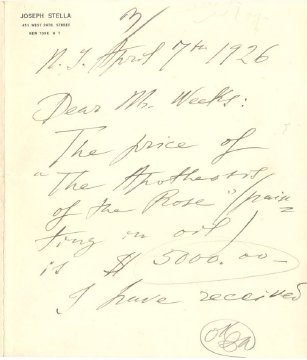 JOSEPH STELLA
451 WEST 24TH STREET
NEW YORK N Y
N. Y. April 7th 1926
Dear Mr. Weeks:
The price of
"The Apotheosis
of the Rose" (pain
ting in oil)
is $ 5000.00—
I have received